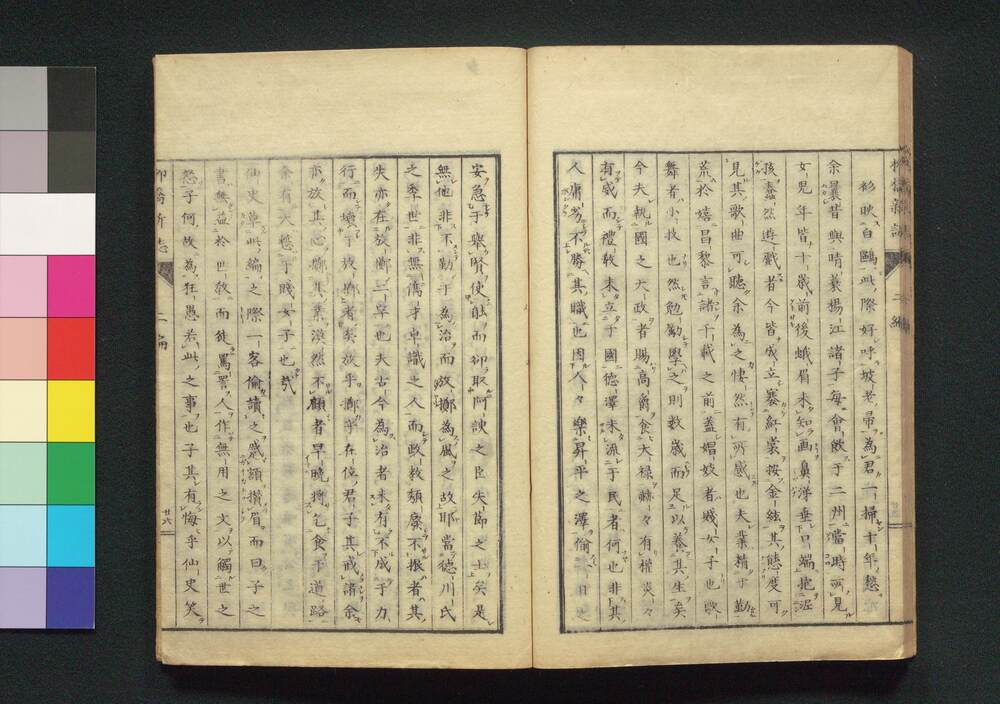 衫映白鷗此際好呼坡老帚為君一掃十年愁
余曩昔與晴蓑楊江諸子每會飲于二州當時所見
女兒年皆十歲前後蛾眉未知画鼻涕垂口端抱渥
孩蠢然遊戲者今皆成立褰紅裳按金絃其態度可
見其歌曲可聽余為之悽然有所感也夫業精于勤
荒於嬉昌黎言諸千載之前蓋娼妓者賤女子也歌
舞者小技也然勉勵學之則數歲而足以養其生矣
今夫執國之大政者賜高爵食大祿赫々有權炎々
有威而禮教未立于國德澤未流于民者何也非其
人庸劣不勝其職也因人々樂昇平之澤偷
安急于舉賢使能而卻取阿諛之臣失節之士矣是
無他非不勤于為治而放擲為風之故耶當德川氏
之季世非無偉才卓識之人而政教頹廢不振者其
失亦在放擲二字也夫古今為治者未有不成于力
行而壞于放擲者矣放乎擲乎在位君子其戒諸余
亦放其心擲其業漠然不顧者早晩將乞食于道路
余有大愁于賤女子也哉
仙史草此編之際一客偷讀之蹙額攢眉而曰子之
書無益於世教而徒罵詈人作無用之文以觸世之
怒子何故為狂愚若此之事也子其有悔乎仙史笑
柳橋新誌
二編
廿六